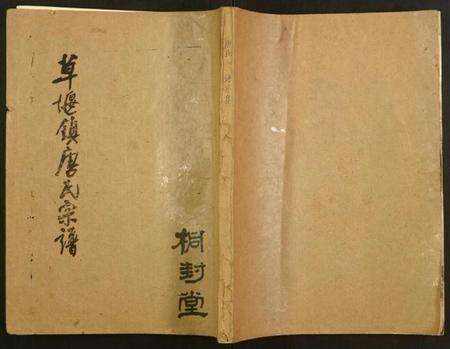 草堰鎮唐氏宗譜
桐封堂